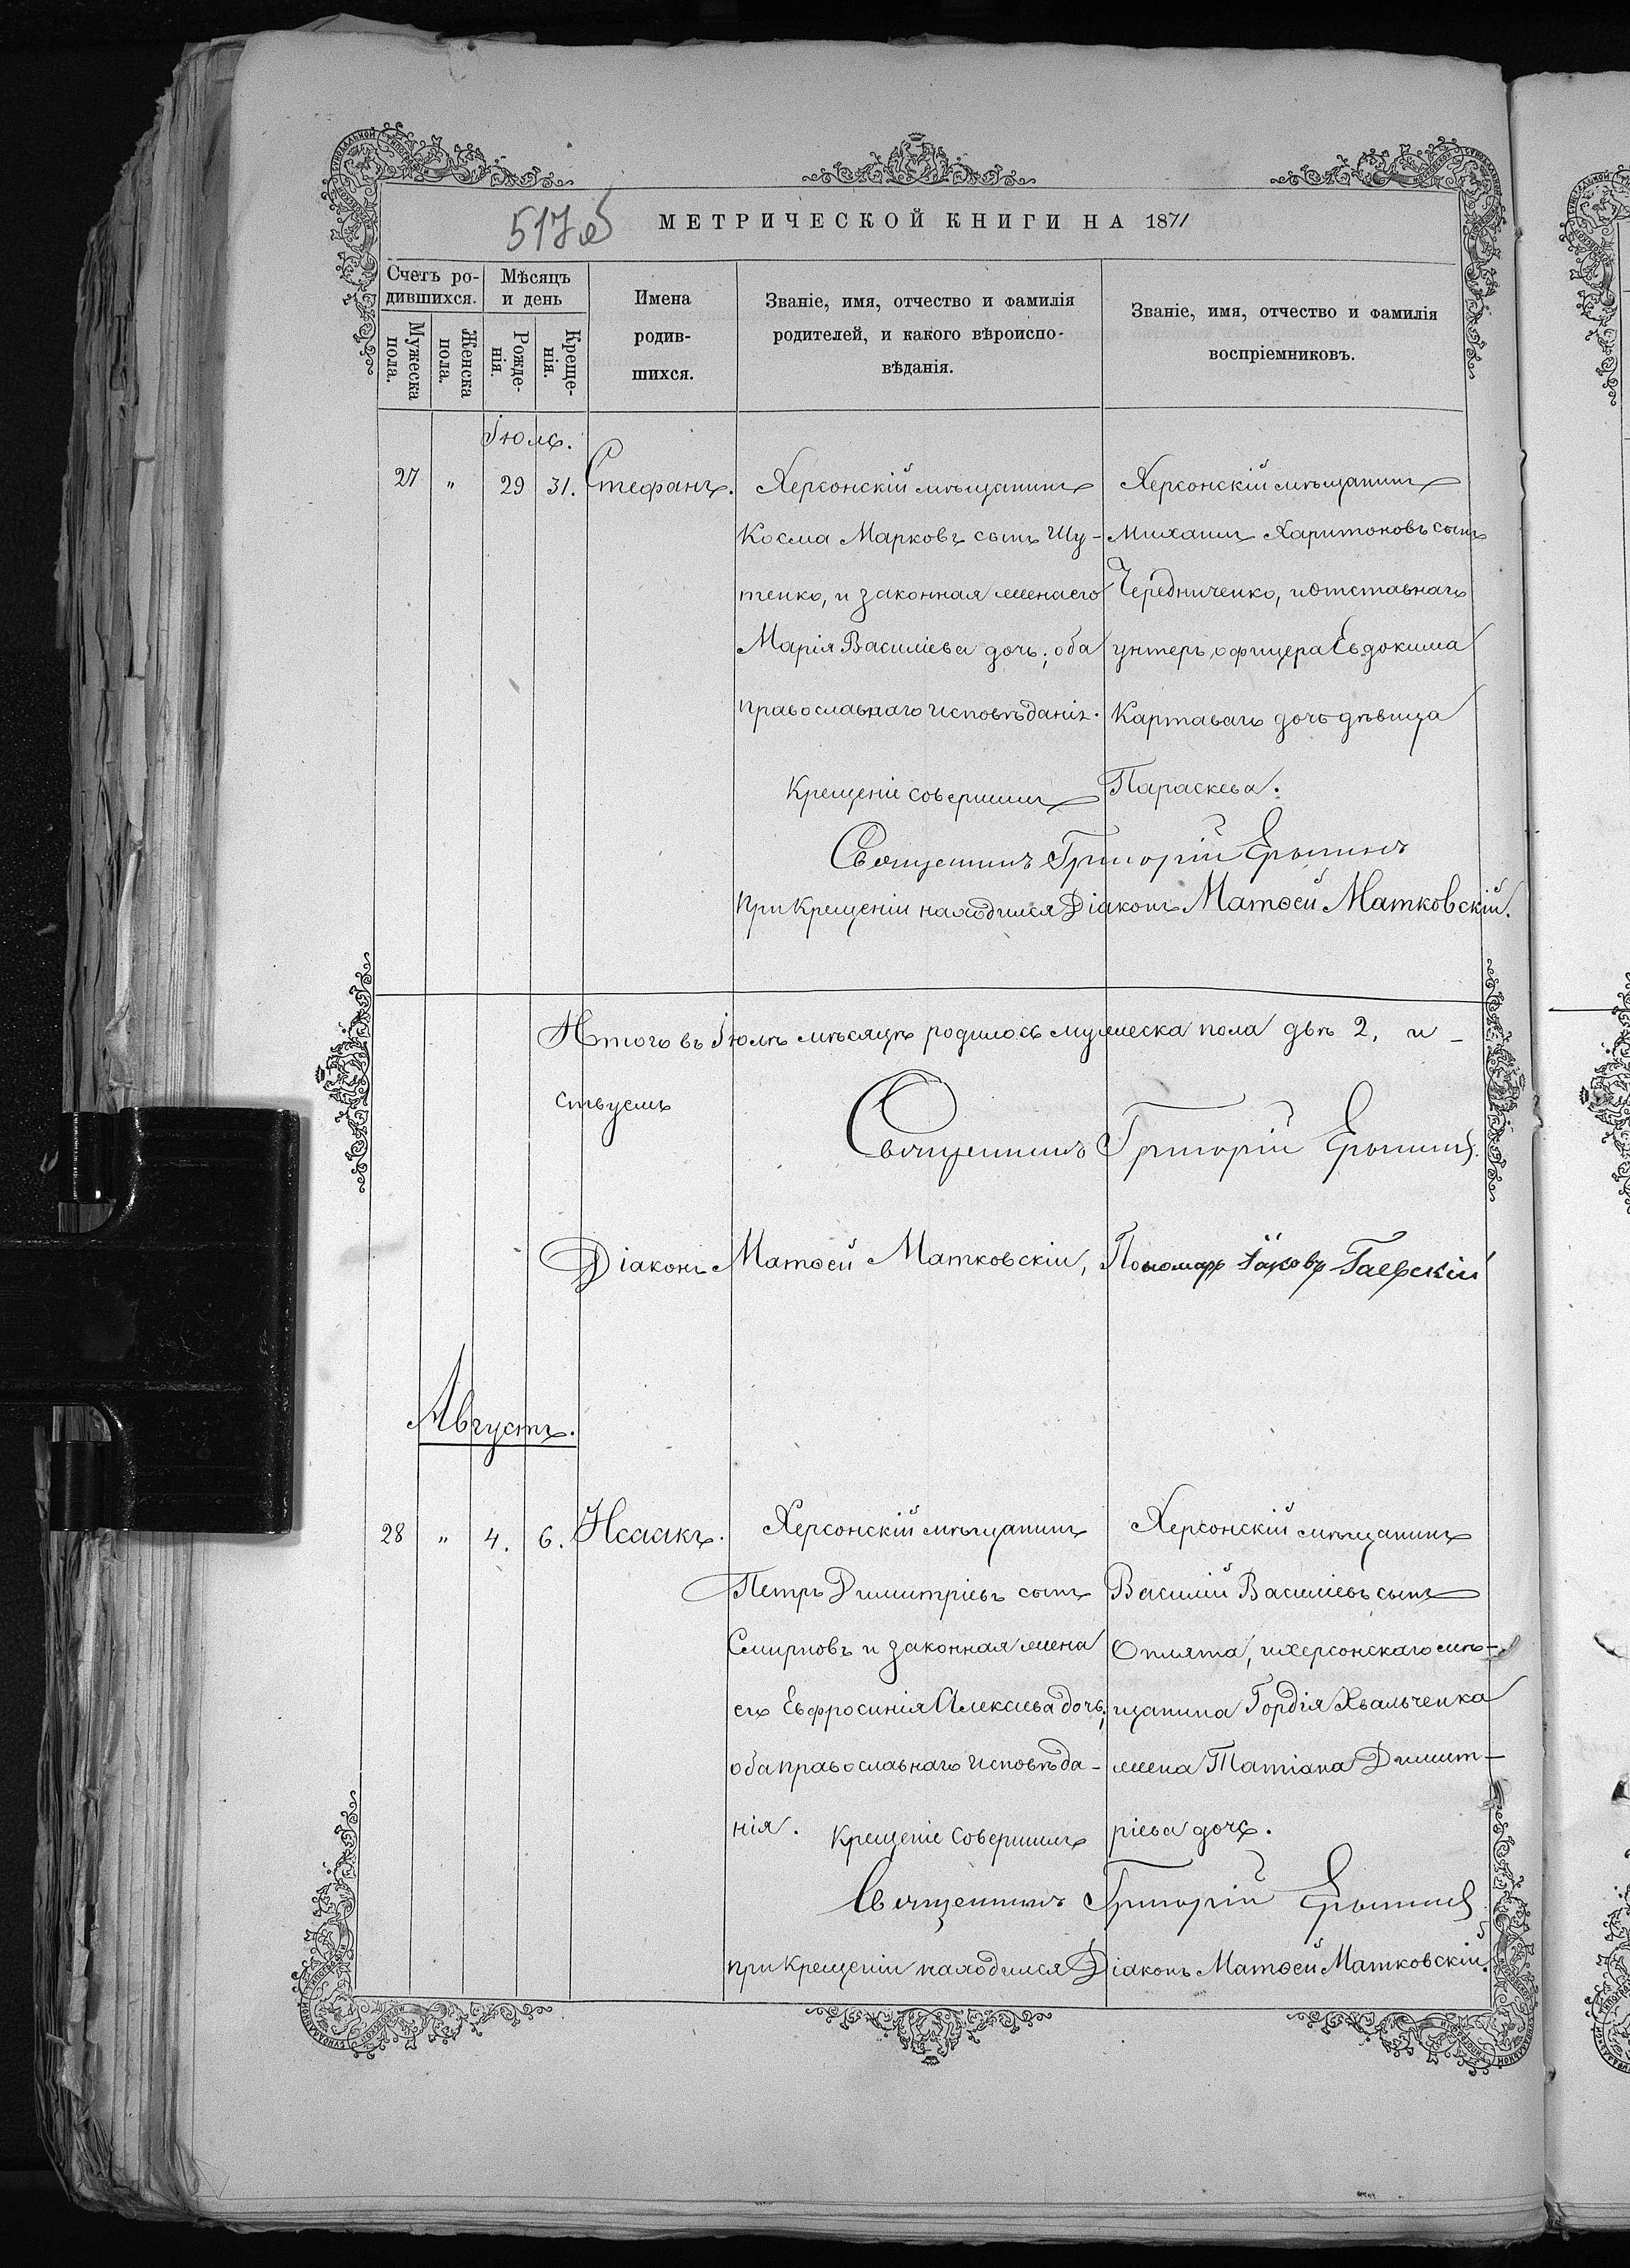 517об
МЕТРИЧЕСКОЙ КНИГИ НА 1871
Счетъ ро-
дившихся.
Мѣсяцъ
и день
Мужеска
пола.
Женска
пола.
Рожде-
нія.
Креще-
нія.
Имена
родив-
шихся.
Званіе, имя, отчество и фамилія
родителей, и какого вѣроиспо-
вѣданія.
Званіе, имя, отчество и фамилія
воспріемниковъ.
Іюль.
27 " 29 31. Стефанъ.
Херсонскій мѣщанинъ
Косма Марковъ сынъ Шу-
тенко, и законная жена его
Марія Василіева дочь; оба
православнаго исповѣданія.
Херсонскій мѣщанинъ
Михаилъ Харитоновъ сынъ
Чередниченко, и отставнаго
унтеръ офицера Евдокима
Картаваго дочь дѣвица
Параскева.
Крещеніе совершилъ
Священникъ Григорій
При Крещеніи находился Діаконъ Матѳей Матковскій.
Итого въ Іюлѣ мѣсяцѣ родилось мужеска пола двѣ 2. и
ствуемъ
Священникъ Григорій
Діаконъ Матѳей Матковскій, Пономарь Іаковъ Гаевскій
Августъ.
28 " 4. 6. Исаакъ.
Херсонскій мѣщанинъ
Петръ Димитріевъ сынъ
Смирновъ и законная жена
его Евфросинія Алексіева дочь;
оба православнаго исповѣда-
нія.
Херсонскій мѣщанинъ
Василій Василіевъ сынъ
Оплята, и херсонскаго мѣ-
щанина Гордія Хвальченка
жена Татіана Димит-
ріева дочь.
Крещеніе совершилъ
Священникъ Григорій
при Крещеніи находился Діаконъ Матѳей Матковскій.